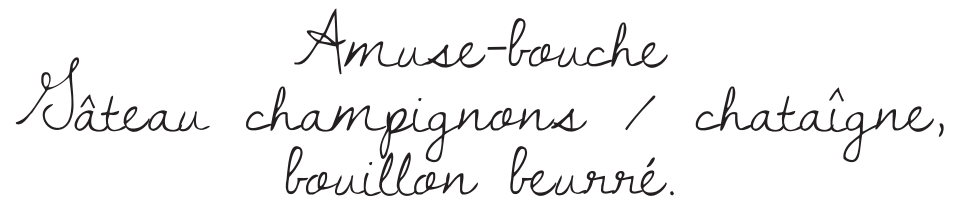 Amuse-bouche
Gâteau champignons / chataîgne,
bouillon beurré.